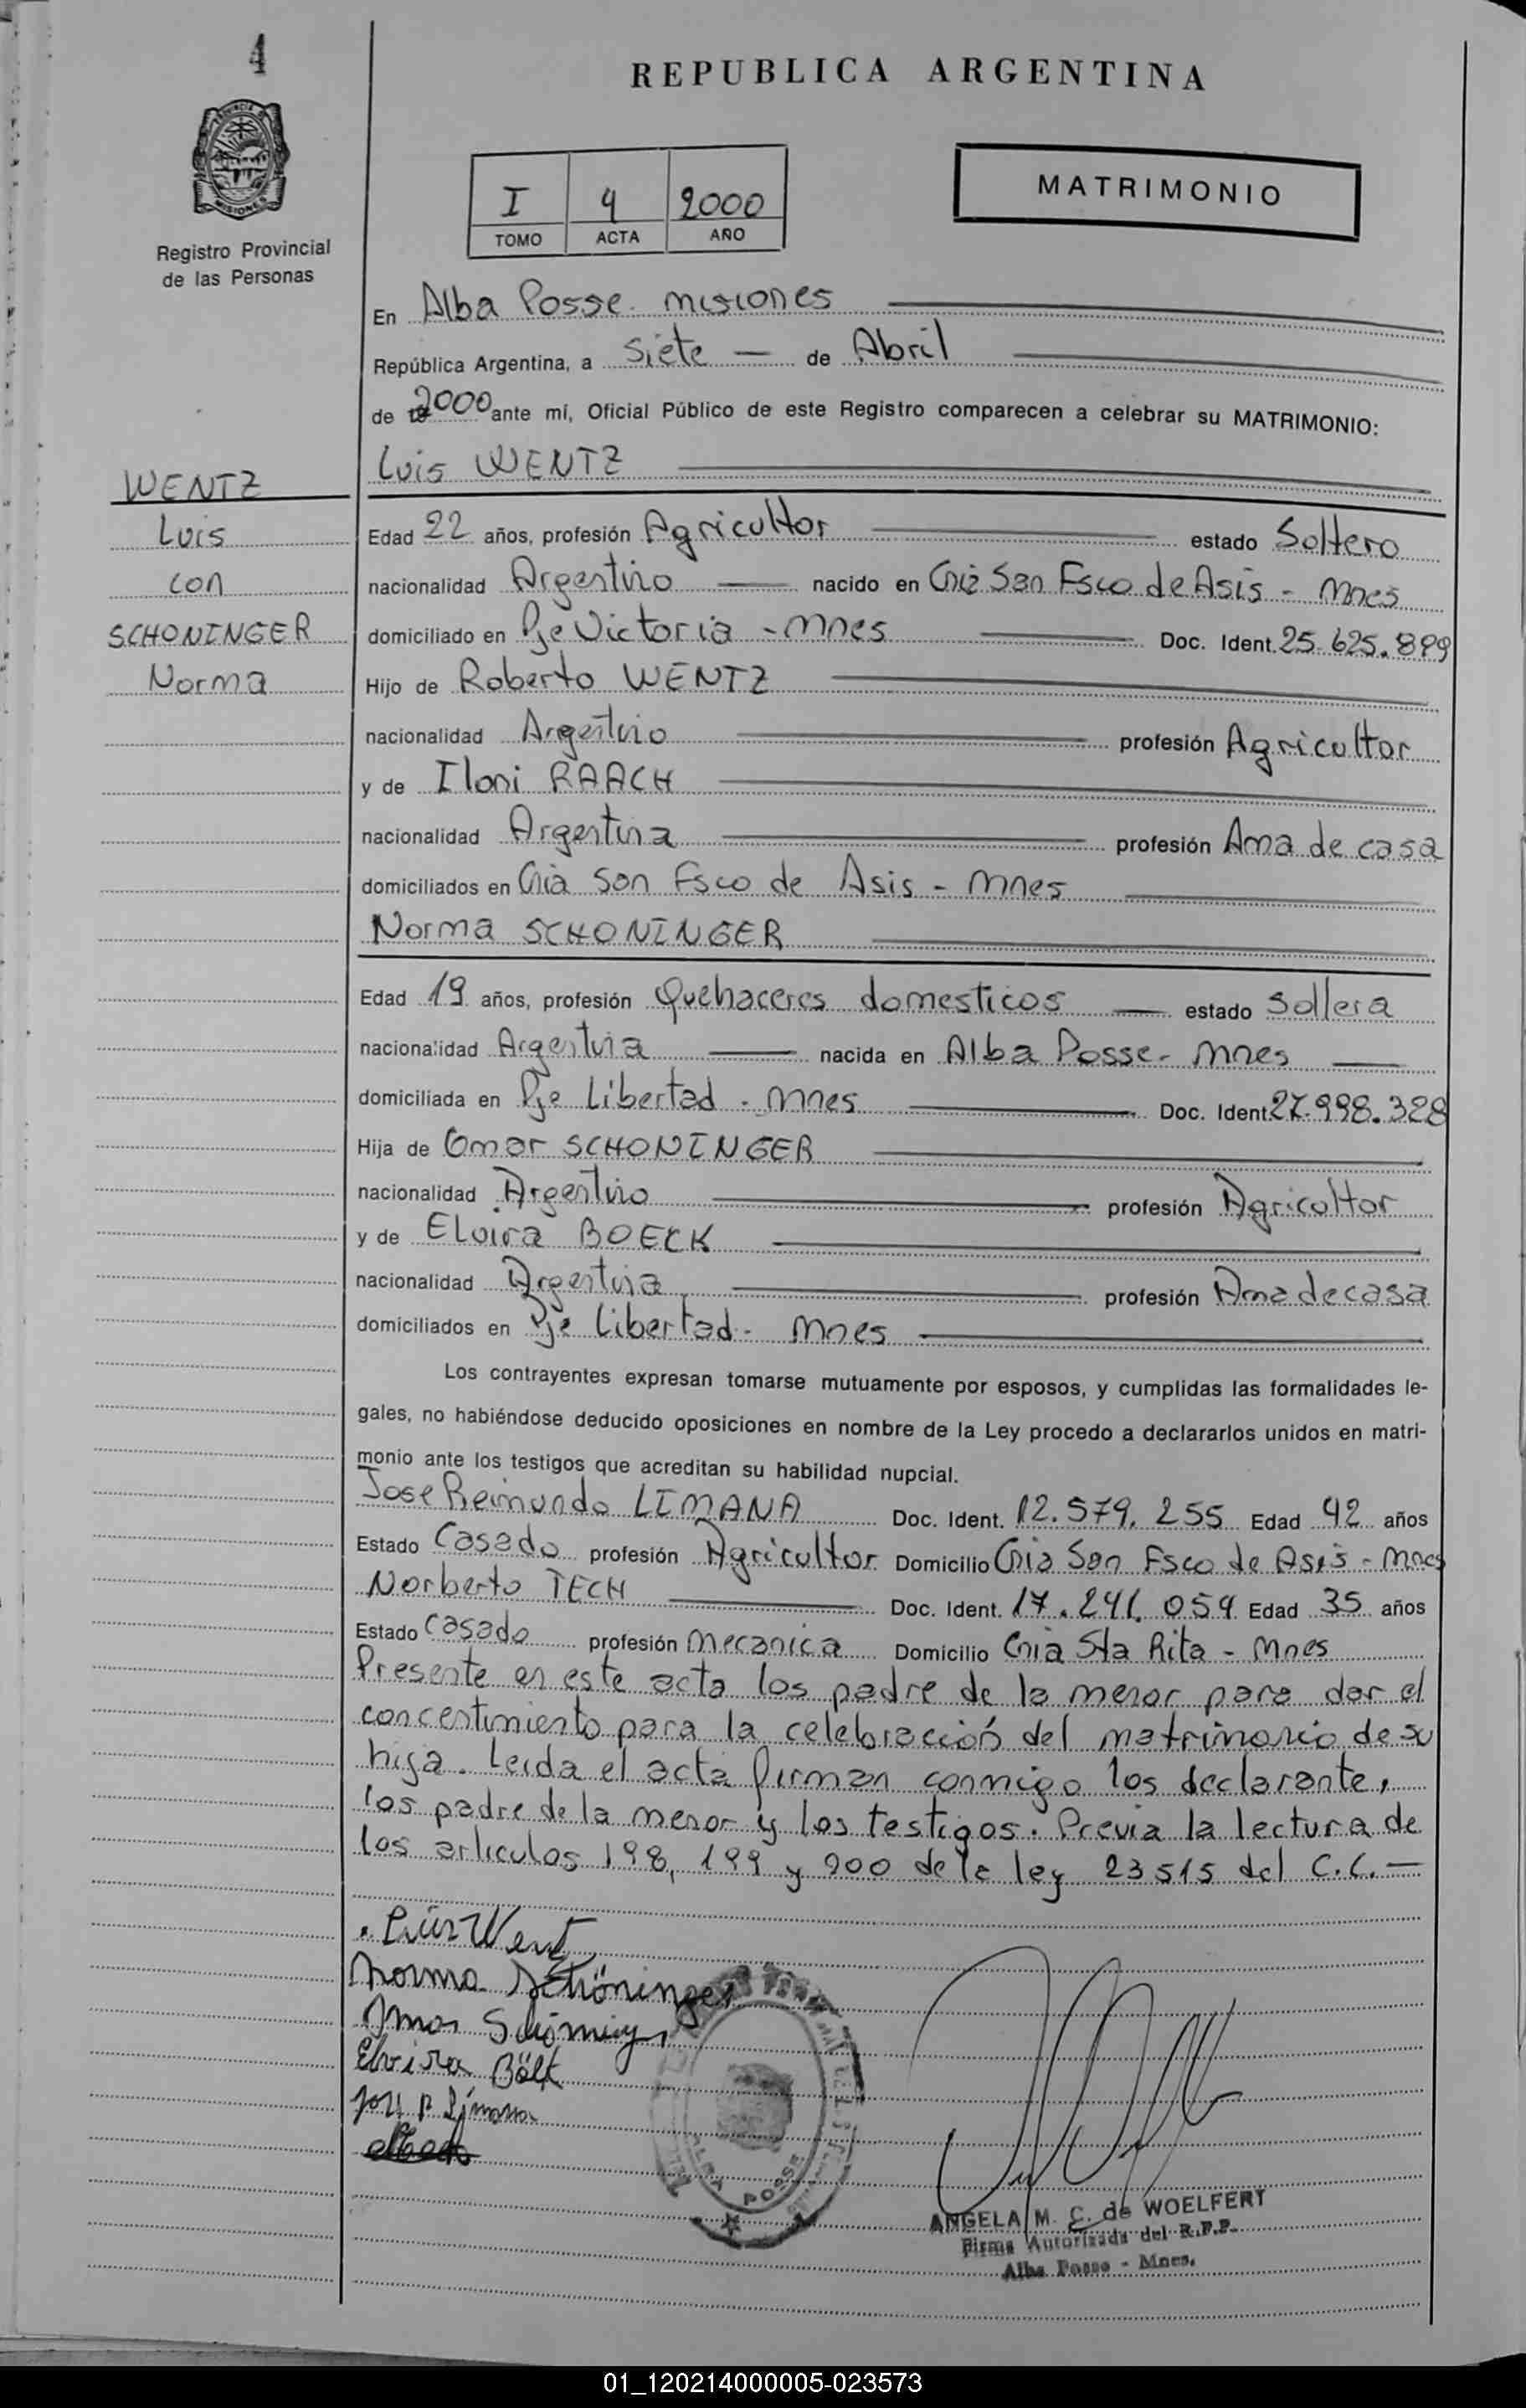 4
REPUBLICA ARGENTINA
PROVINCIA DE
MISIONES
Registro Provincial
de las Personas
I 4 2000
TOMO ACTA AÑO
MATRIMONIO
En Alba Posse. misiones
República Argentina, a Siete — de Abril
de 2000 ante mí, Oficial Público de este Registro comparecen a celebrar su MATRIMONIO:
Luis WENTZ
WENTZ
Luis
con
SCHONINGER
Norma
Edad 22 años, profesión Agricultor estado Soltero
nacionalidad Argentino — nacido en Cnia San Fsco de Asis - Mnes
domiciliado en Pje Victoria - Mnes Doc. Ident. 25.625.899
Hijo de Roberto WENTZ
nacionalidad Argentino profesión Agricultor
y de Iloni RAACH
nacionalidad Argentina profesión Ama de casa
domiciliados en Cnia San Fsco de Asis - Mnes
Norma SCHONINGER
Edad 19 años, profesión Quehaceres domesticos — estado Soltera
nacionalidad Argentina — nacida en Alba Posse - Mnes —
domiciliada en Pje Libertad - Mnes Doc. Ident. 27.998.328
Hija de Omar SCHONINGER
nacionalidad Argentino profesión Agricultor
y de Elvira BOECK
nacionalidad Argentina profesión Ama de casa
domiciliados en Pje Libertad - Mnes
Los contrayentes expresan tomarse mutuamente por esposos, y cumplidas las formalidades le-
gales, no habiéndose deducido oposiciones en nombre de la Ley procedo a declararlos unidos en matri-
monio ante los testigos que acreditan su habilidad nupcial.
Jose Reimundo LIMANA Doc. Ident. 12.579.255 Edad 42 años
Estado Casado profesión Agricultor Domicilio Cnia San Fsco de Asis - Mnes
Norberto TECH Doc. Ident. 17.241.054 Edad 35 años
Estado Casado profesión mecanica Domicilio Cnia Sta Rita - Mnes
Presente en este acta los padre de la menor para dar el
concentimiento para la celebracción del matrimonio de su
hija. Leida el acta firman conmigo los declarante,
los padre de la menor y los testigos. Previa la lectura de
los articulos 198, 199 y 200 de la ley 23515 del C.C.—
Luis Wentz
Norma Schöninger
Omar Schöninger
Elvira Bökk
José R. Limana
ALBA POSSE
ANGELA M. C. de WOELFERT
Firma Autorizada del R.P.P.
Alba Posse - Mnes.
01_120214000005-023573